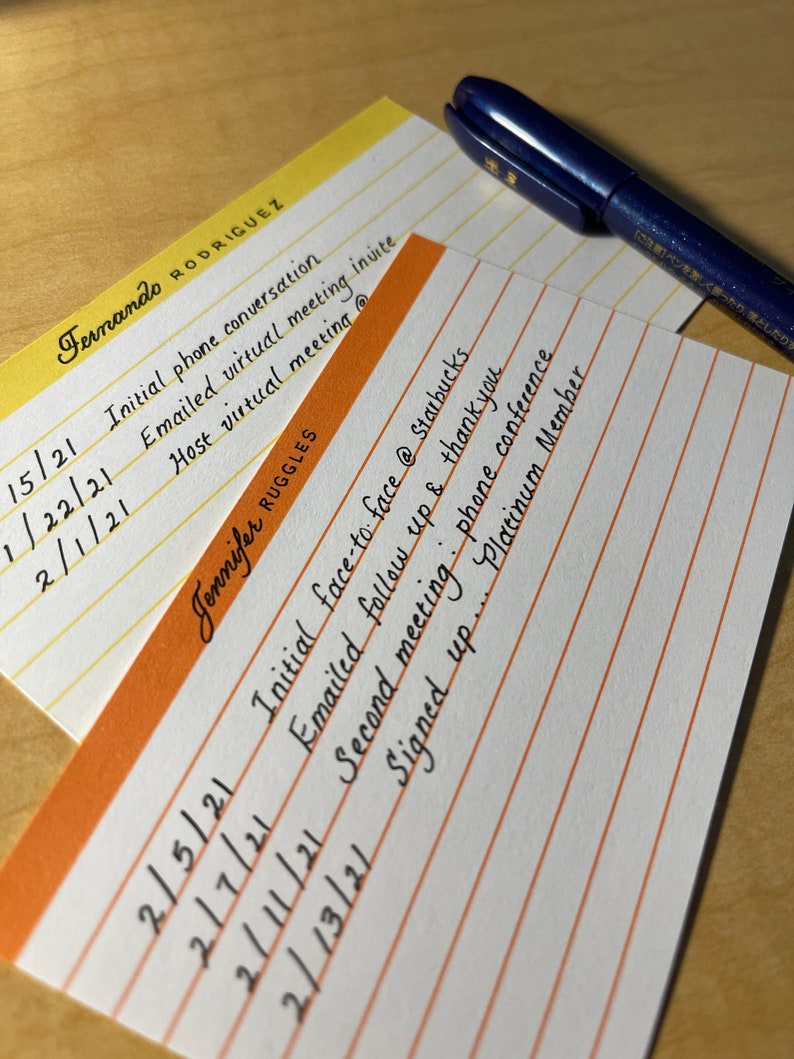 Fernando RODRIGUEZ
15/21 Initial phone conversation
1/22/21 Emailed virtual meeting invite
2/1/21 Host virtual meeting @
Jennifer RUGGLES
2/5/21 Initial face-to-face @ Starbucks
2/7/21 Emailed follow up & thank you
2/11/21 Second meeting: phone conference
2/13/21 Signed up... Platinum Member